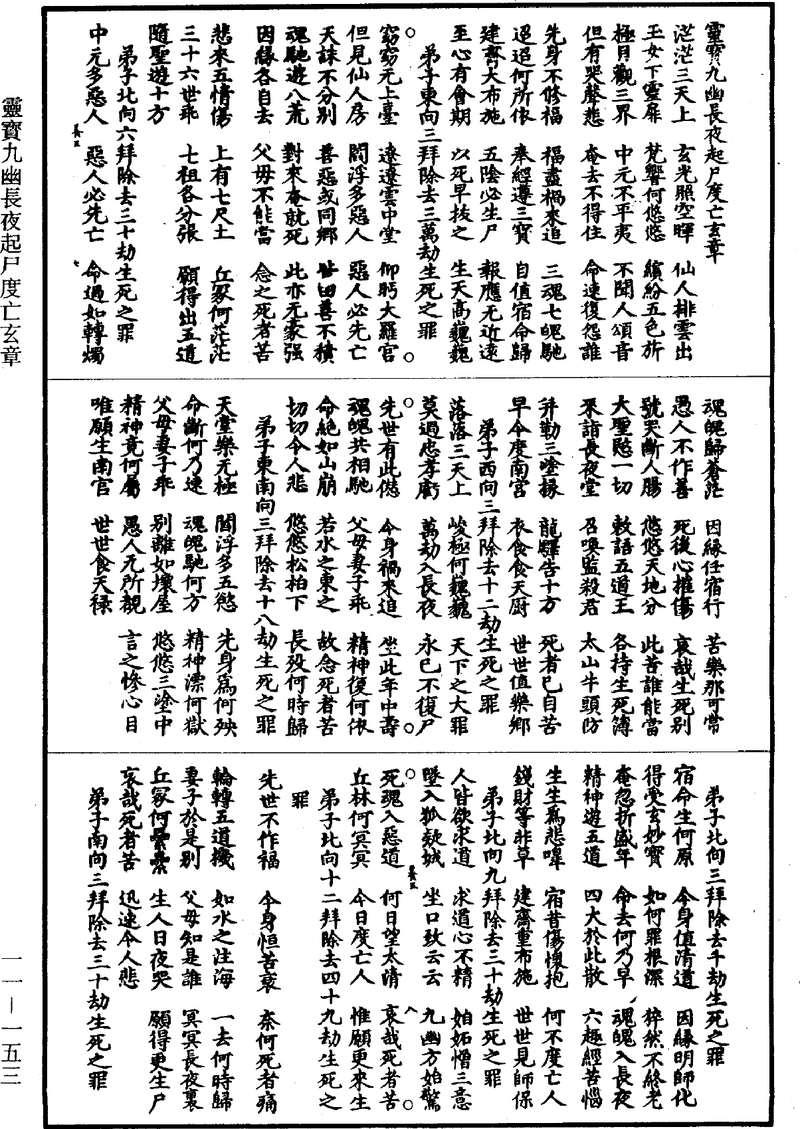 靈寶九幽長夜起尸度亡玄章
茫茫三天上　玄光照空暉　仙人排雲出
玉女下靈扉　梵響何悠悠　繽紛五色旂
極目觀三界　中元不平夷　不聞人頌音
但有哭聲悲　奄去不得住　命速復怨誰
先身不修福　福盡禍來追　三魂七魄馳
迢迢何所依　奉經遵三寶　自值宿命歸
建齋大布施　五陰必生尸　報應无近遠
至心有會期　以死早拔之　生天高巍巍
弟子東向三拜除去三萬劫生死之罪
窈窈元上臺　遼遼雲中堂　仰眄大羅官
但見仙人房　閻浮多惡人　惡人必先亡
天誅不分別　善惡或同鄉　皆由善不積
魂馳遊八荒　對來奄就死　此亦无豪强
因緣各自去　父母不能當　念之死者苦
悲來五情傷　上有七尺土　丘冢何茫茫
三十六世乖　七祖各分張　願得出五道
隨聖遊十方
弟子北向六拜除去三十劫生死之罪
中元多惡人　惡人必先亡　命過如轉燭
魂魄歸蒼茫　因緣任宿行　苦樂那可常
愚人不作善　死後心摧傷　哀哉生死別
號哭斷人腸　悠悠天地分　此苦誰能當
大聖愍一切　敕語五道王　各持生死簿
來詣長夜堂　召喚監殺君　太山牛頭防
并勒三塗掾　龍驛告十方　死者已自苦
早令度南宮　衣食食天厨　世世值樂鄉
弟子西向三拜除去十二劫生死之罪
落落三天上　峻極何巍巍　天下之大罪
莫過忠孝虧　萬劫入長夜　永已不復尸
先世有此僽　今身禍來追　坐此年中壽
魂魄共相馳　父母妻子乖　精神復何依
命絕如山崩　若水之東之　故念死者苦
切切令人悲　悠悠松柏下　長歿何時歸
弟子東南向三拜除去十八劫生死之罪
天堂樂无極　閻浮多五慾　先身爲何殃
命斷何乃速　魂魄馳何方　精神漂何獄
父母妻子乖　別離如壞屋　悠悠三塗中
精神竟何屬　愚人无所覩　言之慘心目
唯願生南宮　世世食天祿
弟子北向三拜除去千劫生死之罪
宿命生何原　今身值清道　因緣明師化
得受玄妙寶　如何罪根深　猝然不終老
奄忽折盛年　命去何乃早　魂魄入長夜
精神遊五道　四大於此散　六趣經苦惱
生生爲悲嘷　宿昔傷懷抱　何不度亡人
錢財等非草　建齋重布施　世世見師保
弟子北向九拜除去三十劫生死之罪
人皆欲求道　求道心不精　始妬憎三意
墜入狐欬城　坐口致云云　九幽方始驚
死魂入惡道　何日望太清　哀哉死者苦
丘林何冥冥　今日度亡人　惟願更來生
弟子北向十二拜除去四十九劫生死之
罪
先世不作福　今身恒苦衰　奈何死者痛
輪轉五道機　如水之注海　一去何時歸
妻子於是別　父母知是誰　冥冥長夜裏
丘冢何纍纍　生人日夜哭　願得更生尸
哀哉死者苦　迅速令人悲
弟子南向三拜除去三十劫生死之罪
靈寶九幽長夜起尸度亡玄章
一一—一五三